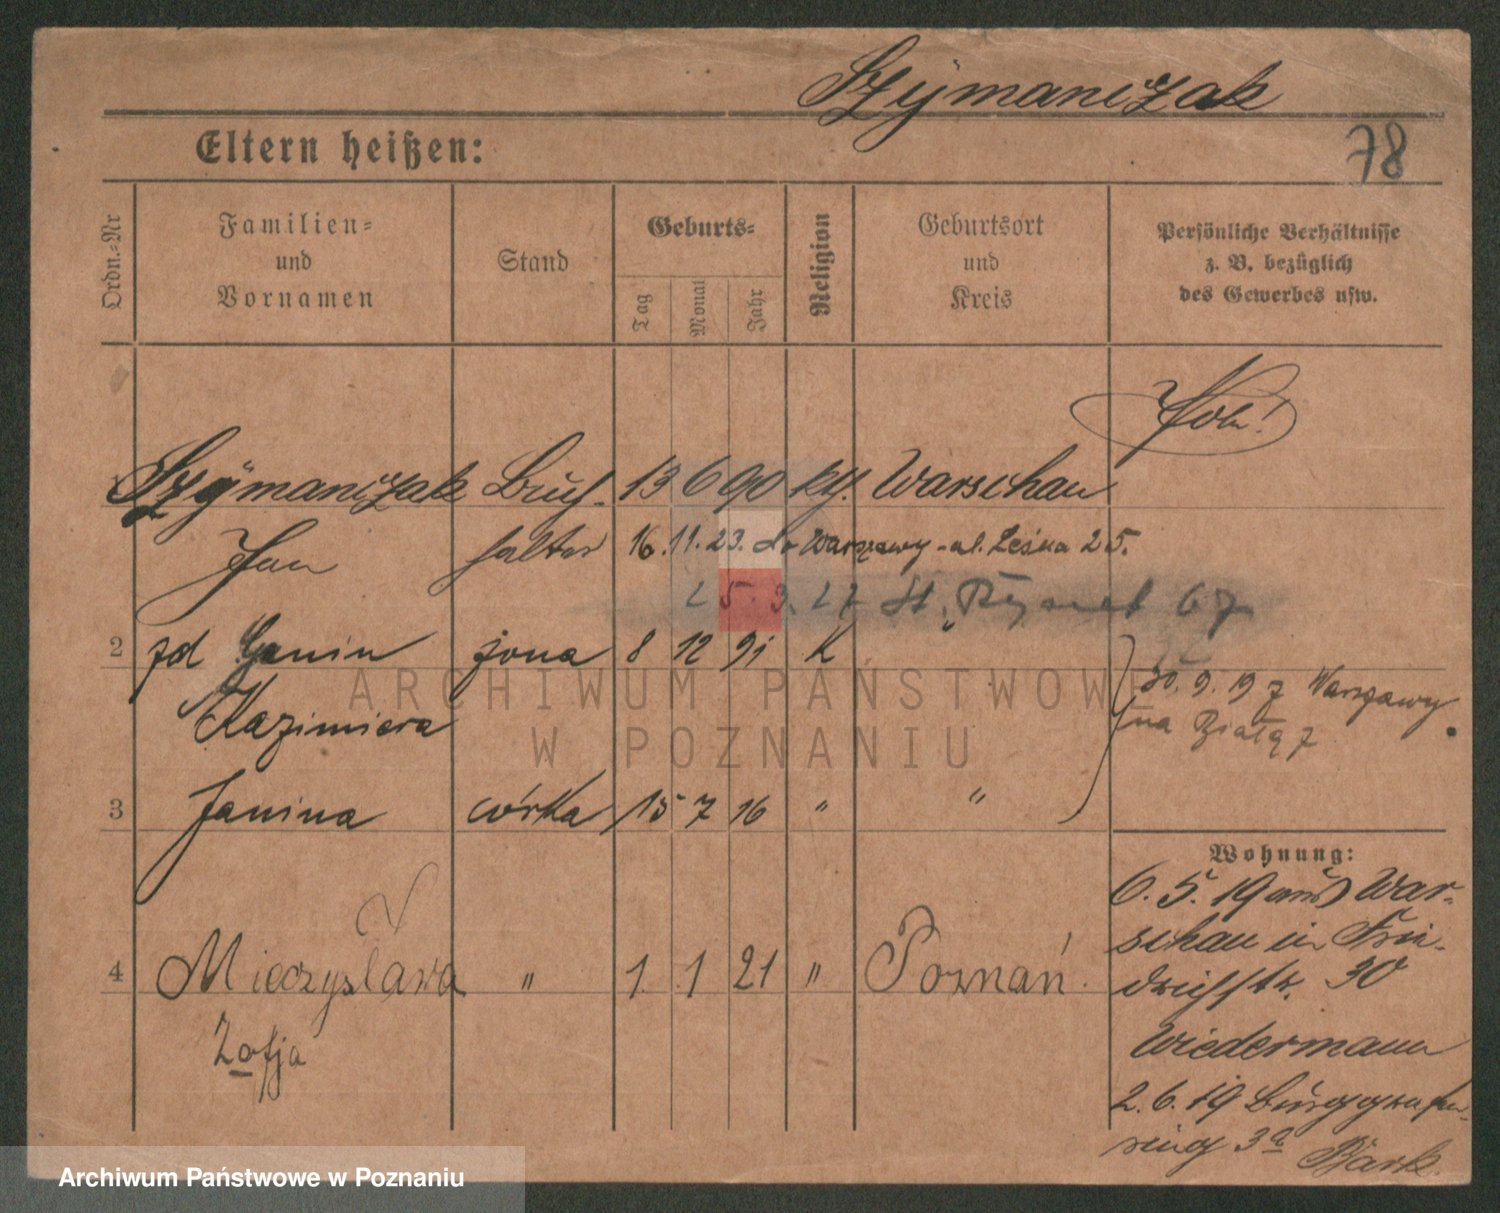 Szymaniczak
78
Eltern heißen:
Ordn.-Nr
Familien-
und
Vornamen
Stand
Geburts-
Tag
Monat
Jahr
Religion
Geburtsort
und
Kreis
Persönliche Verhältnisse
z. B. bezüglich
des Gewerbes usw.
Szymaniczak Buch- 13 6 90 kg. Warschau
Jan halter 16.11.23. do Warszawy - ul. Leśna 25.
25.3.27 St. Rynek 67
2 zd Janin żona 8 12 91 K
30.9.19 z Warszawy
Kazimiera
na
3 Janina córka 15 7 16 " "
Wohnung:
6.5.19 aus War-
schau in Frie-
4 Mieczysława " 1. 1 21 " Poznań.
drichstr. 30
Zofja
Wiedermann
2.6.19 Burggrafen-
ring 3a
ARCHIWUM PAŃSTWOWE
W POZNANIU
Archiwum Państwowe w Poznaniu